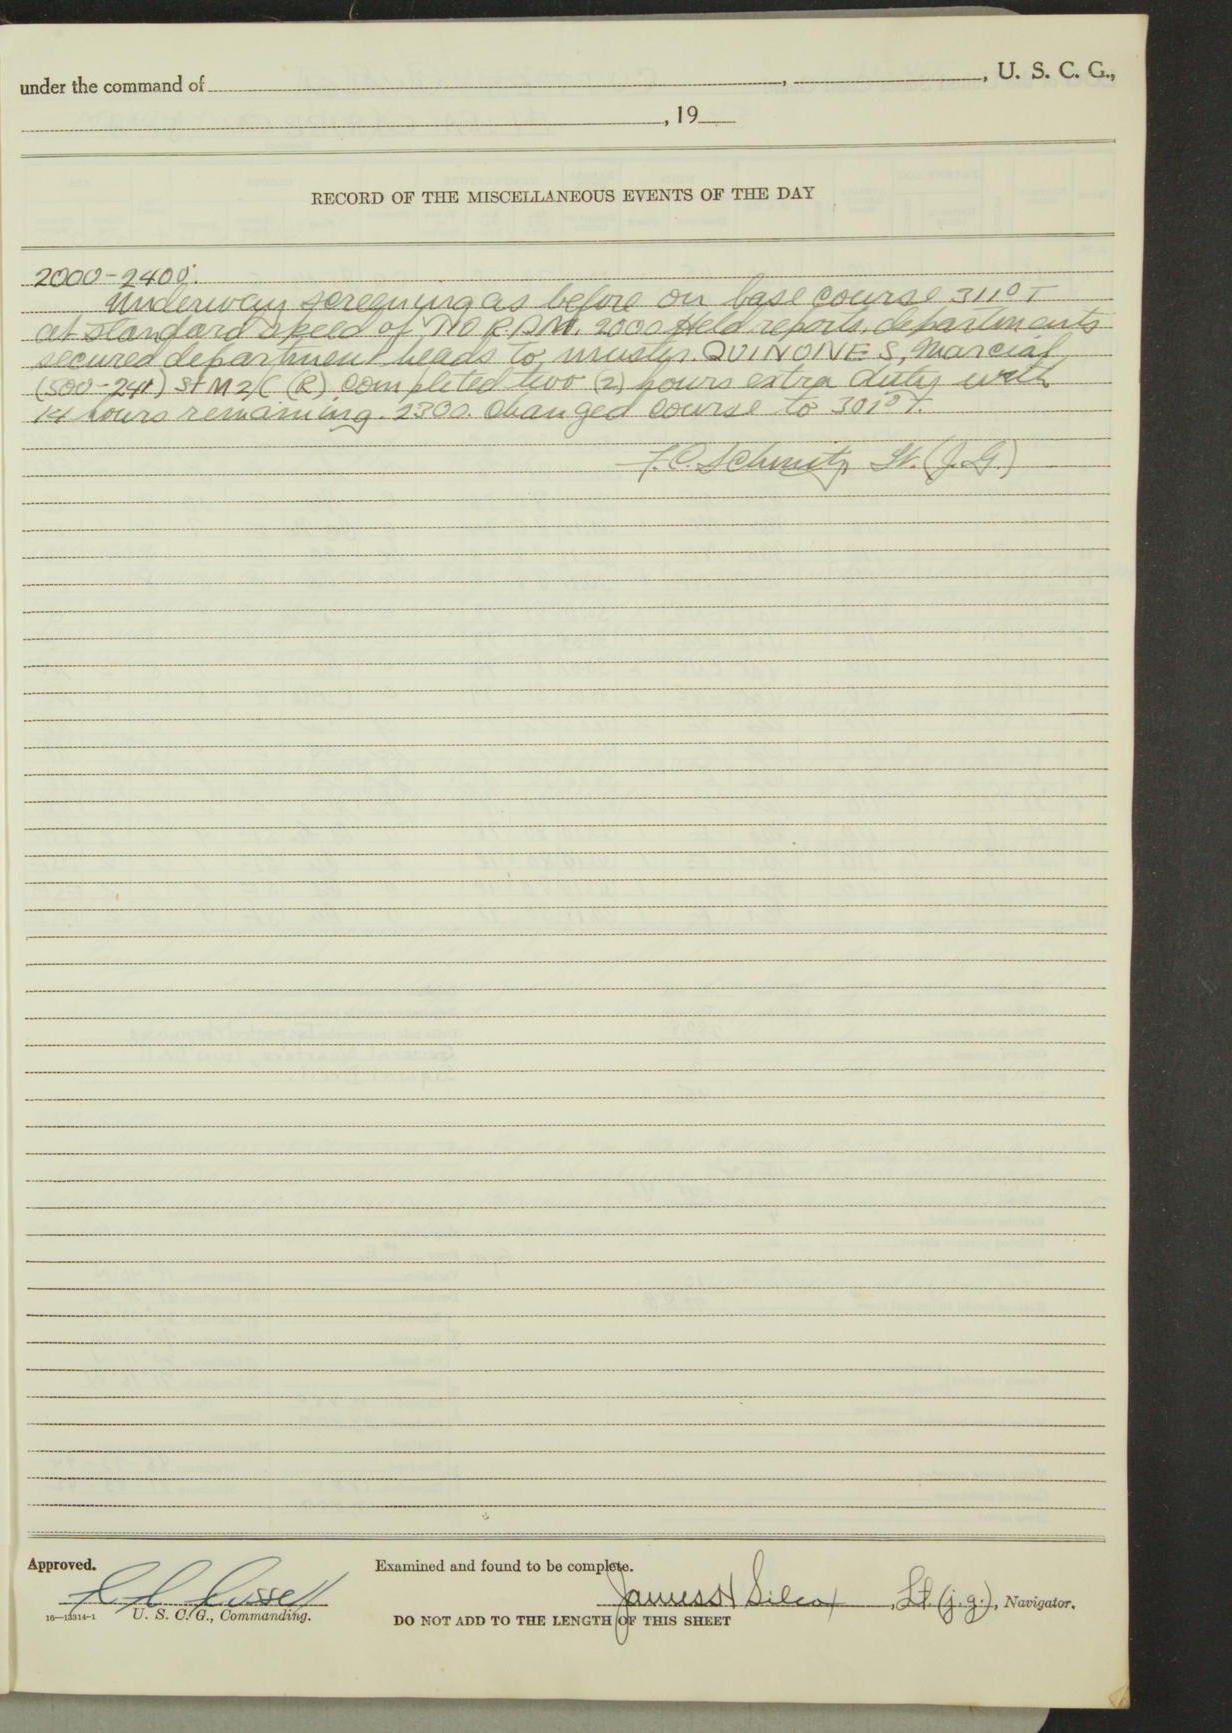 under the command of , , U. S. C. G.,
, 19
RECORD OF THE MISCELLANEOUS EVENTS OF THE DAY
2000-2400.
Underway screening as before on base course 311° T
at standard speed of R.P.M. 2000 Held reports, departments
secured department heads to muster. QUINONES, Marcial
(500-241) StM2/C (R) completed two (2) hours extra duty with
14 hours remaining. 2300. Changed course to 301° T.
Schmitz Lt. (J.G.)
Approved.
Examined and found to be complete.
Russell
James H Silcox, Lt. (j.g.), Navigator.
16—13314-1 U. S. C. G., Commanding.
DO NOT ADD TO THE LENGTH OF THIS SHEET